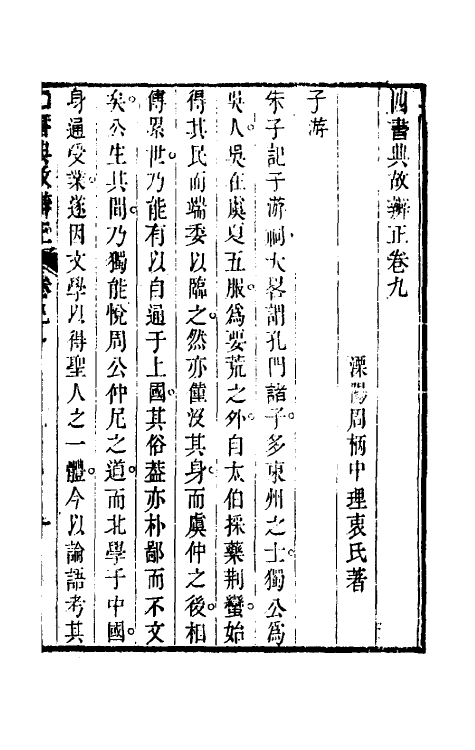 四書典故辨正卷九
溧陽周柄中理衷氏著
子游
朱子記子游祠大畧謂孔門諸子多東州之士獨公爲
吳人吳在虞夏五服爲要荒之外自太伯採藥荆蠻始
得其民而端委以臨之然亦僅沒其身而虞仲之後相
傳累世乃能有以自通于上國其俗葢亦朴鄙而不文
矣公生其間乃獨能悅周公仲尼之道而北學于中國
身通受業遂因文學以得聖人之一體今以論語考其
四書典故辨正 卷九 一